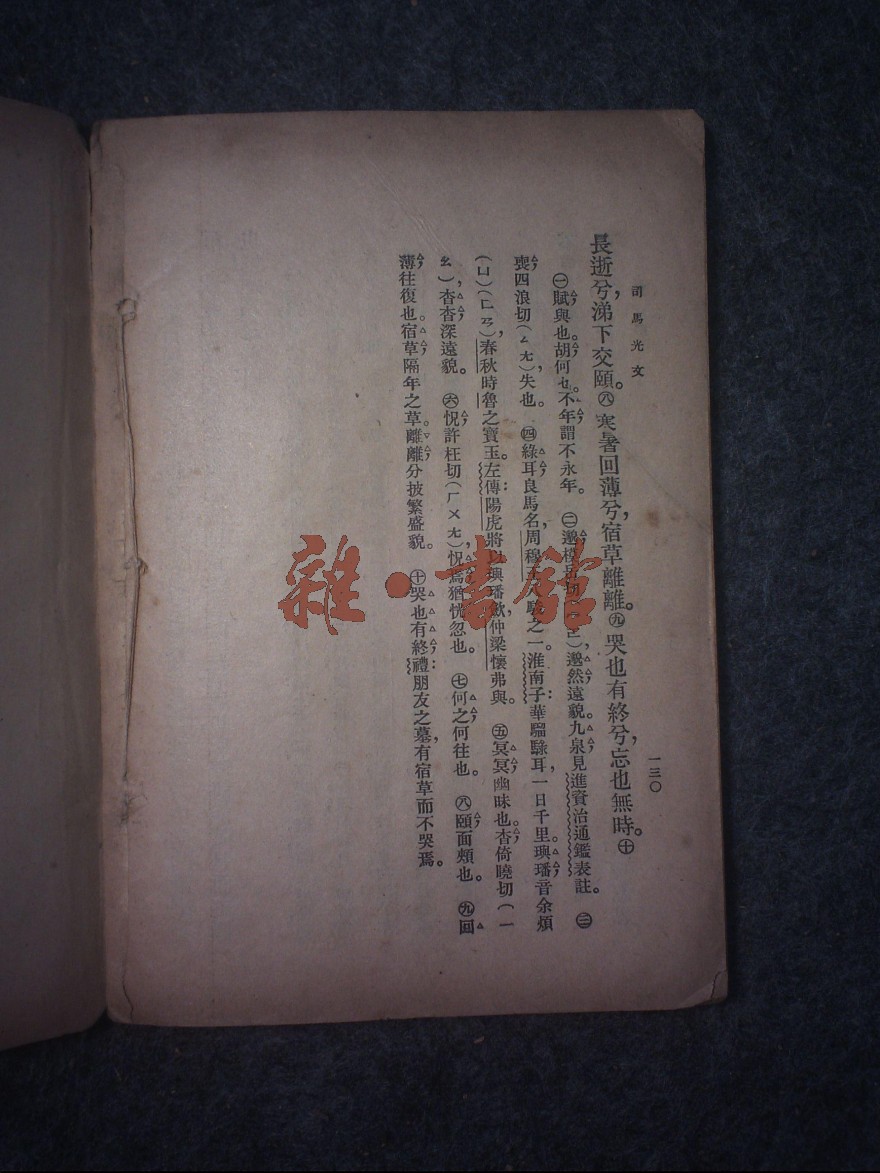 司馬光文
一三〇
長逝兮，涕下交頤。㊇寒暑回薄兮，宿草離離。㊈哭也有終兮，忘也無時。㊉
㊀賦，與也。胡，何也。不年，謂不永年。 ㊁邈，切（），邈然，遠貌。九泉，見進資治通鑑表註。 ㊂
喪，四浪切（ㄙㄤ），失也。 ㊃綠耳，良馬名，周穆王八駿之一。淮南子：華騮騄耳，一日千里。璵璠，音余煩
（ㄩ）（ㄈㄢ），春秋時魯之寶玉。左傳：陽虎將以璵璠歛，仲梁懷弗與。 ㊄冥冥，幽昧也。杳，倚曉切（ㄧ
ㄠ），杳杳，深遠貌。 ㊅怳，許枉切（ㄏㄨㄤ），怳焉，猶恍忽也。 ㊆何之，何往也。 ㊇頤，面頰也。 ㊈回
薄，往復也。宿草，隔年之草。離離，分披繁盛貌。 ㊉哭也有終，禮：朋友之墓，有宿草而不哭焉。
雜·書館